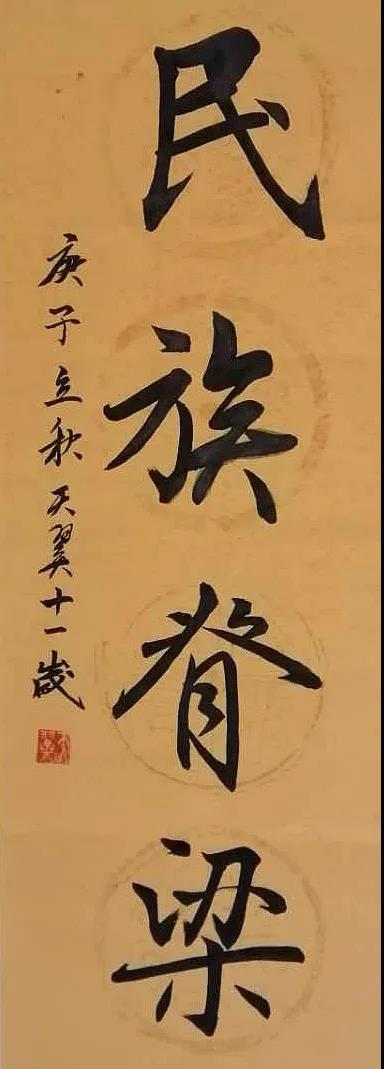 民族脊梁
庚子立秋天翼十一歲